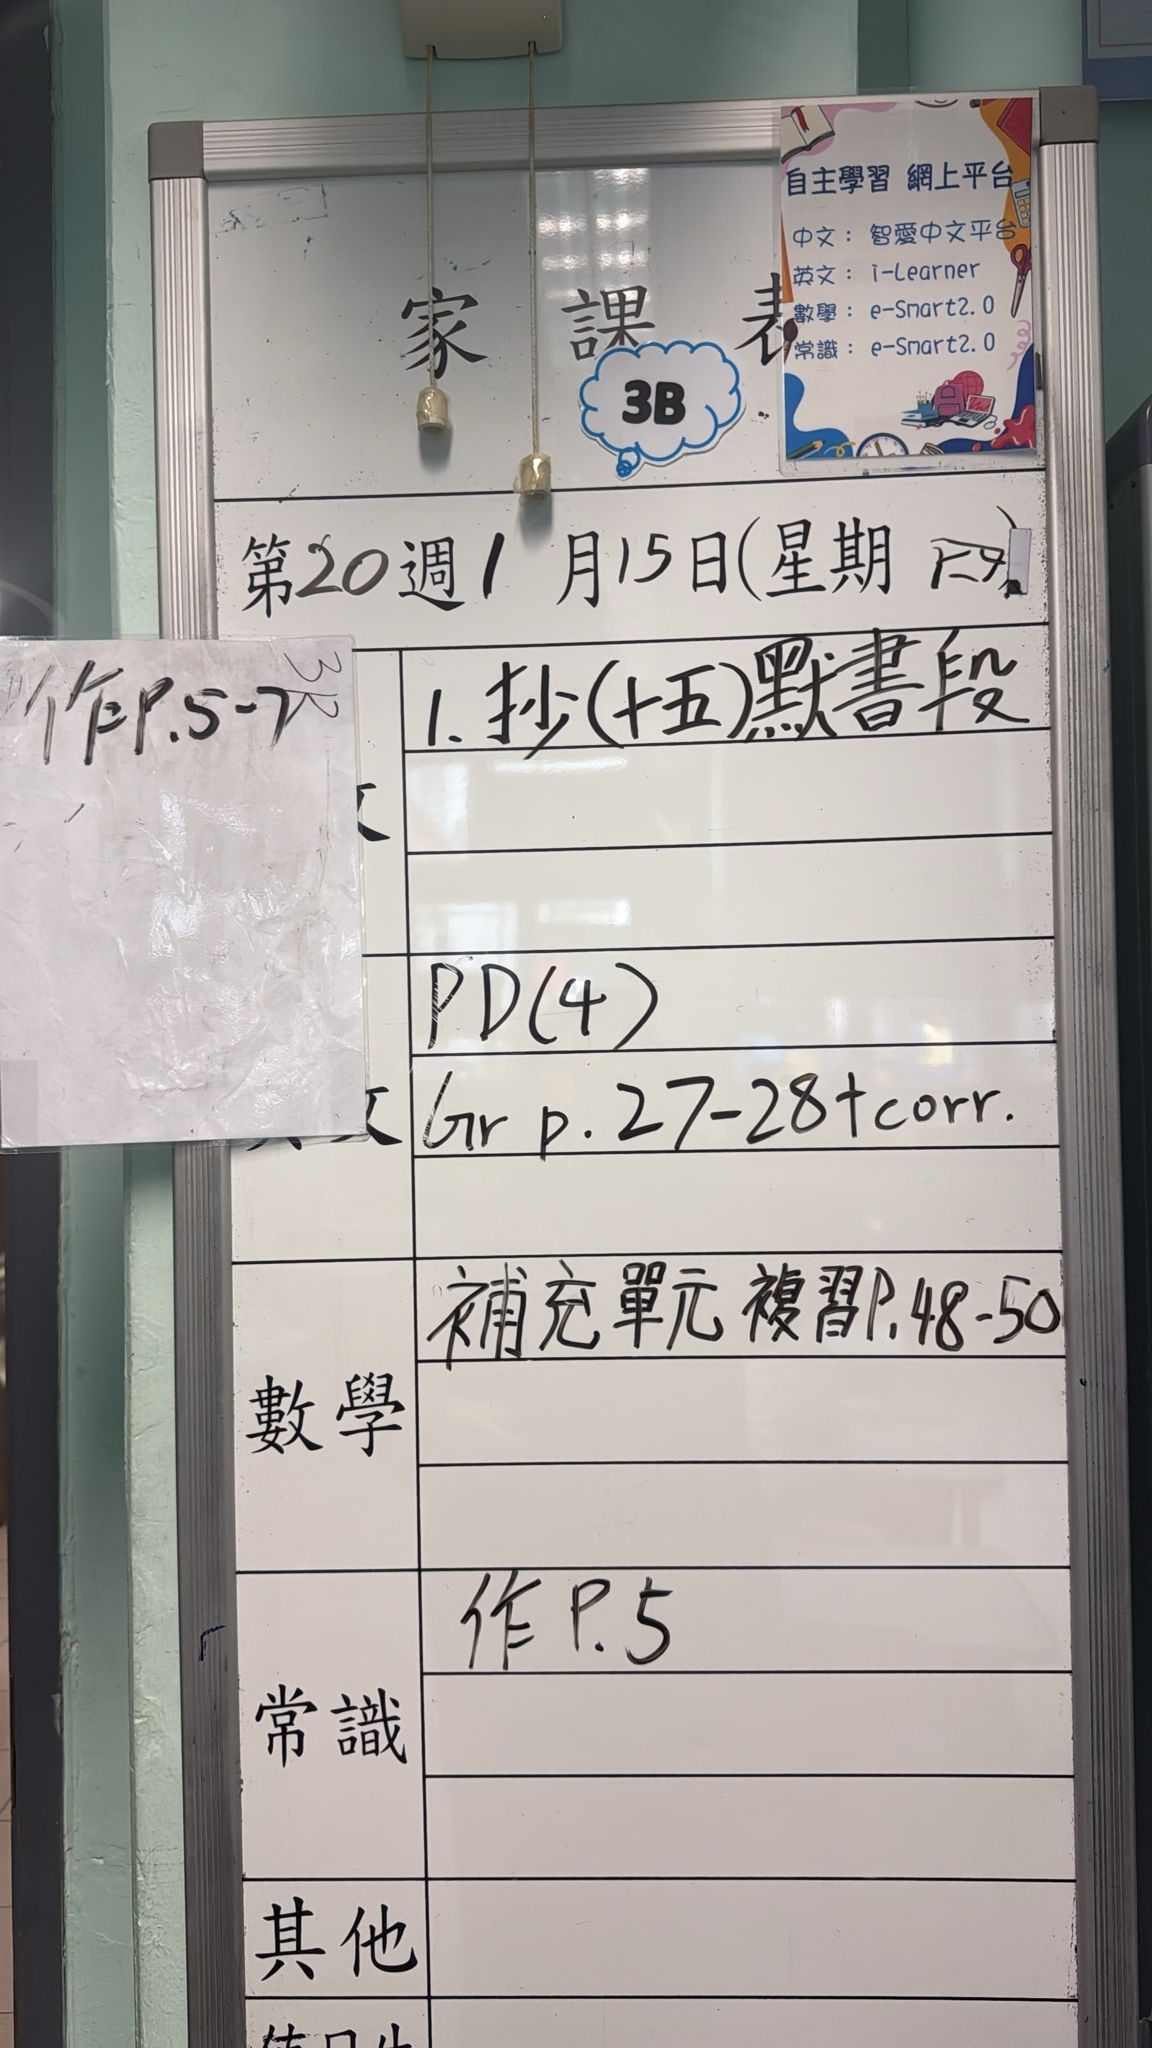 自主學習 網上平台
中文： 智愛中文平台
英文： i-Learner
數學： e-Smart2.0
常識： e-Smart2.0
家 課 表
3B
第20週1月15日(星期 四)
作P.5-7
文
1. 抄(十五)默書段
文
PD(4)
Gr p. 27-28+corr.
數學
補充單元 複習P.48-50
常識
作 P.5
其他